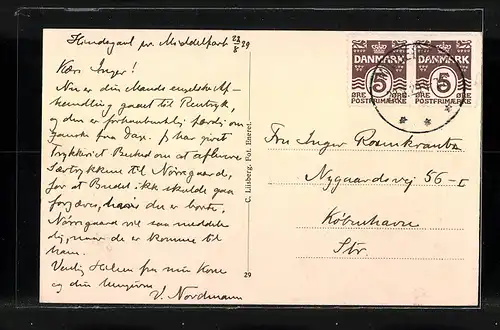 Hindsgavl pr Middelfart 28/8 29
Kære Inger!
Nu er din Mands engelske Af-
handling gaaet til Rentryk,
og den er forhaabentlig færdig om
ganske faa Dage. Jeg har givet
Trykkeriet Besked om at aflevere
Særtrykkene til Nörregaard,
for at Budet ikke skulde gaa
forgæves, hvis der er borte.
Nörregaard vil saa meddele
dig, naar de er komne til
ham.
Venlig Hilsen fra min Kone
og din hengivne
V. Nordmann
C. Lüsberg. Fot. Eneret.
29
DANMARK
5
ØRE ØRE
POSTFRIMÆRKE
DANMARK
5
ØRE ØRE
POSTFRIMÆRKE
Fru Inger Rosenkrantz
Nygaardsvej 56-I
København
Str.